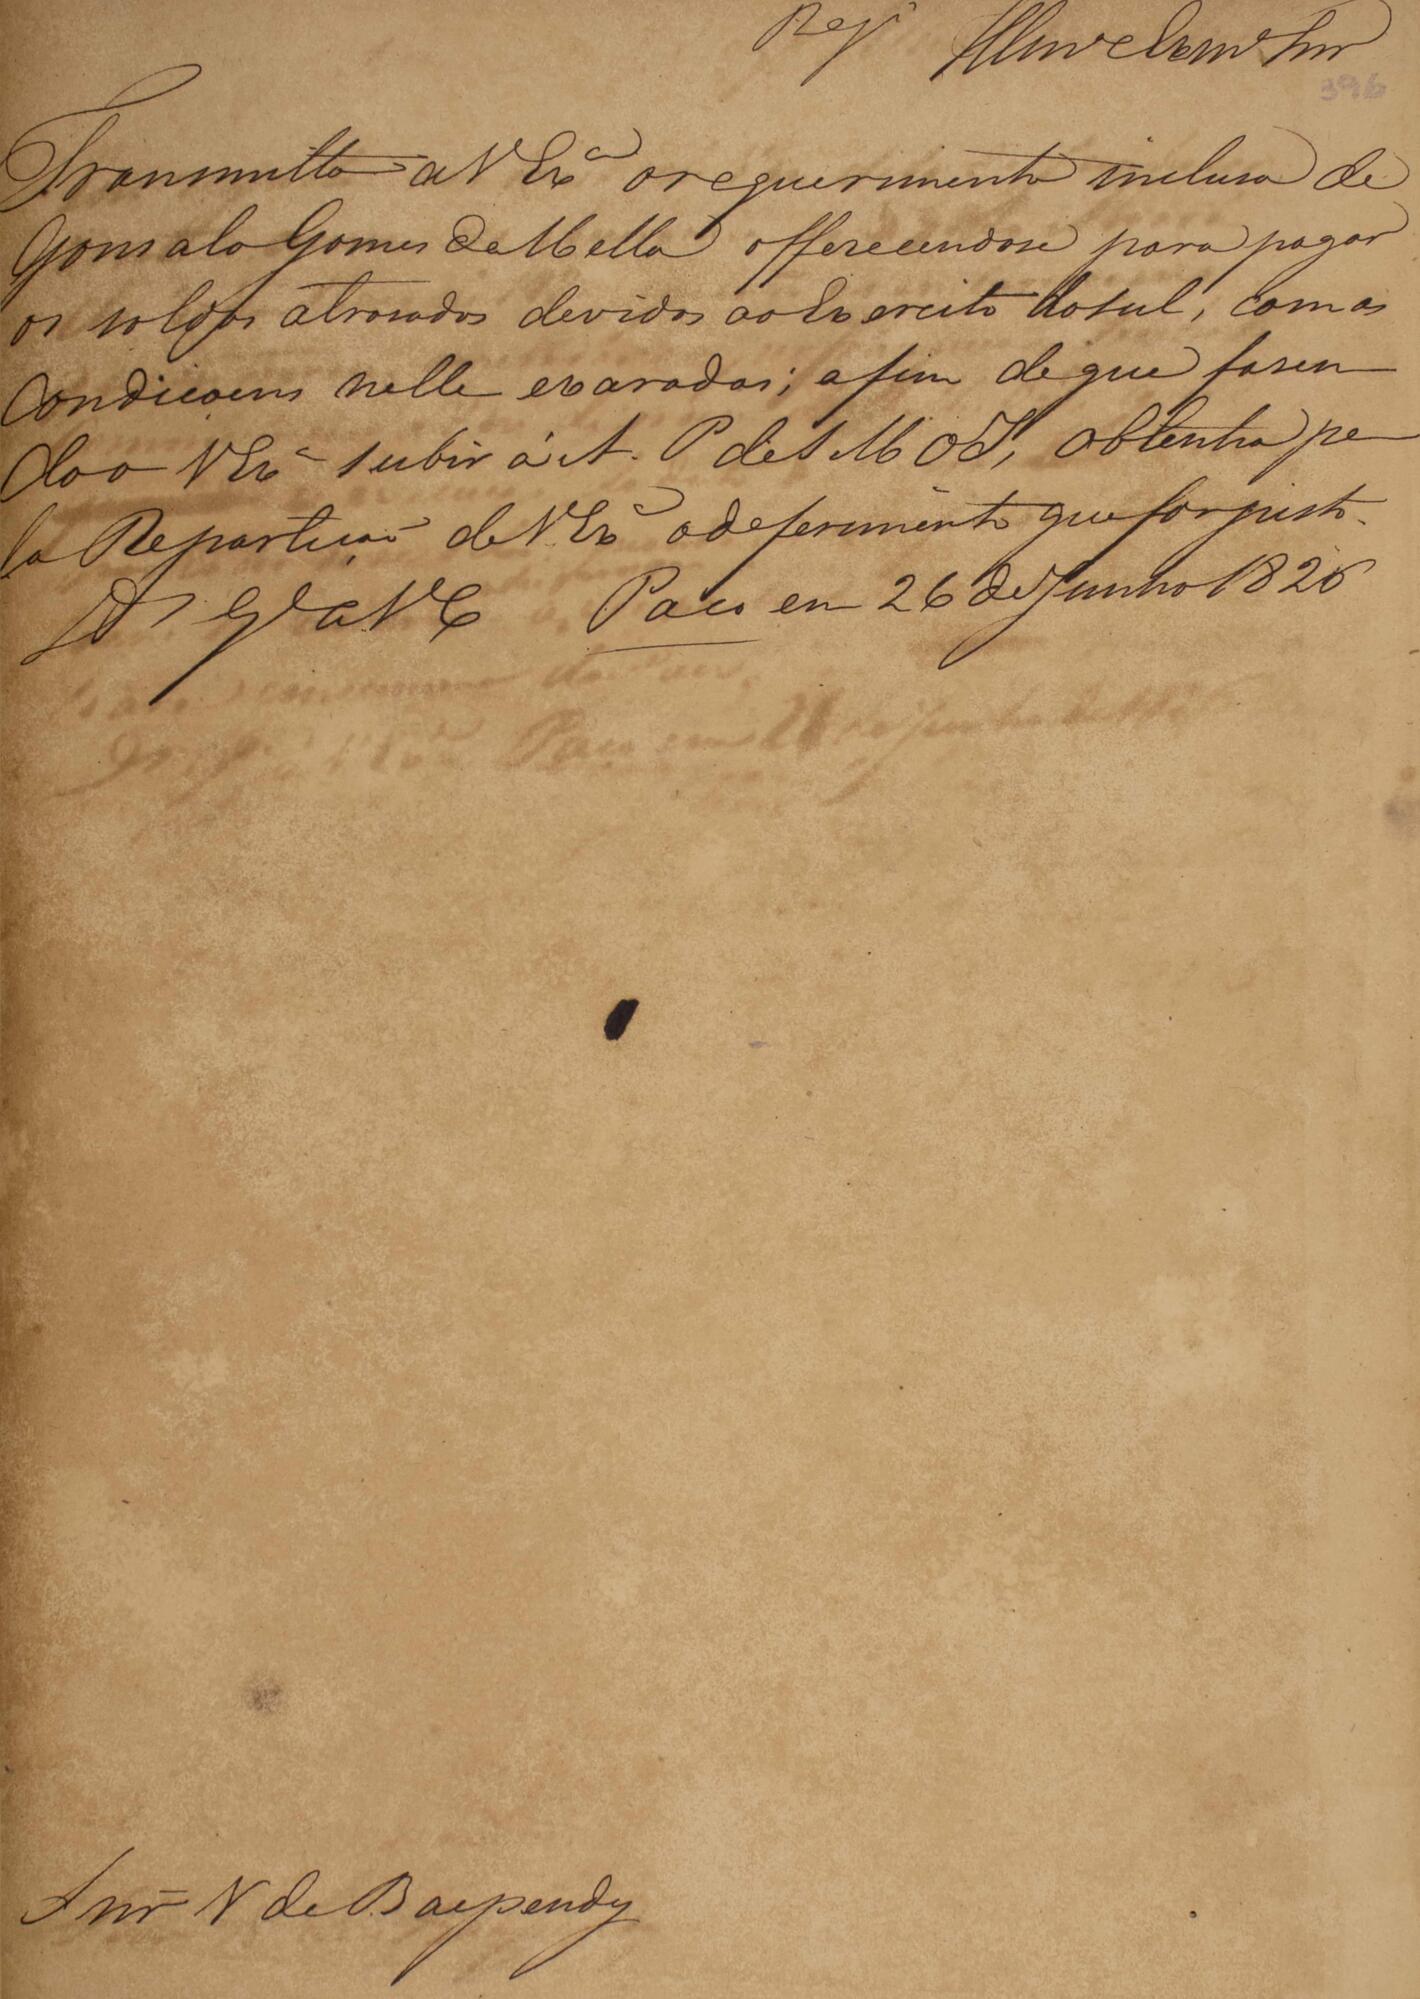 Reg.º Illmo e Exmo Snr
396
Transmitto a V Exª o requerimento incluso de
Gonsalo Gomes de Mello offerecendose para pagar
os soldos atrasados devidos ao Exercito do Sul, com as
Condiçoens nelle exaradas; afim de que fasen
do o V Exª subir á A. P de S M O I, obtenha pe
la Repartição de V Exª o deferimento que for justo.
D G e a V E Paço em 26 de Junho 1826
Snr V de Baependy